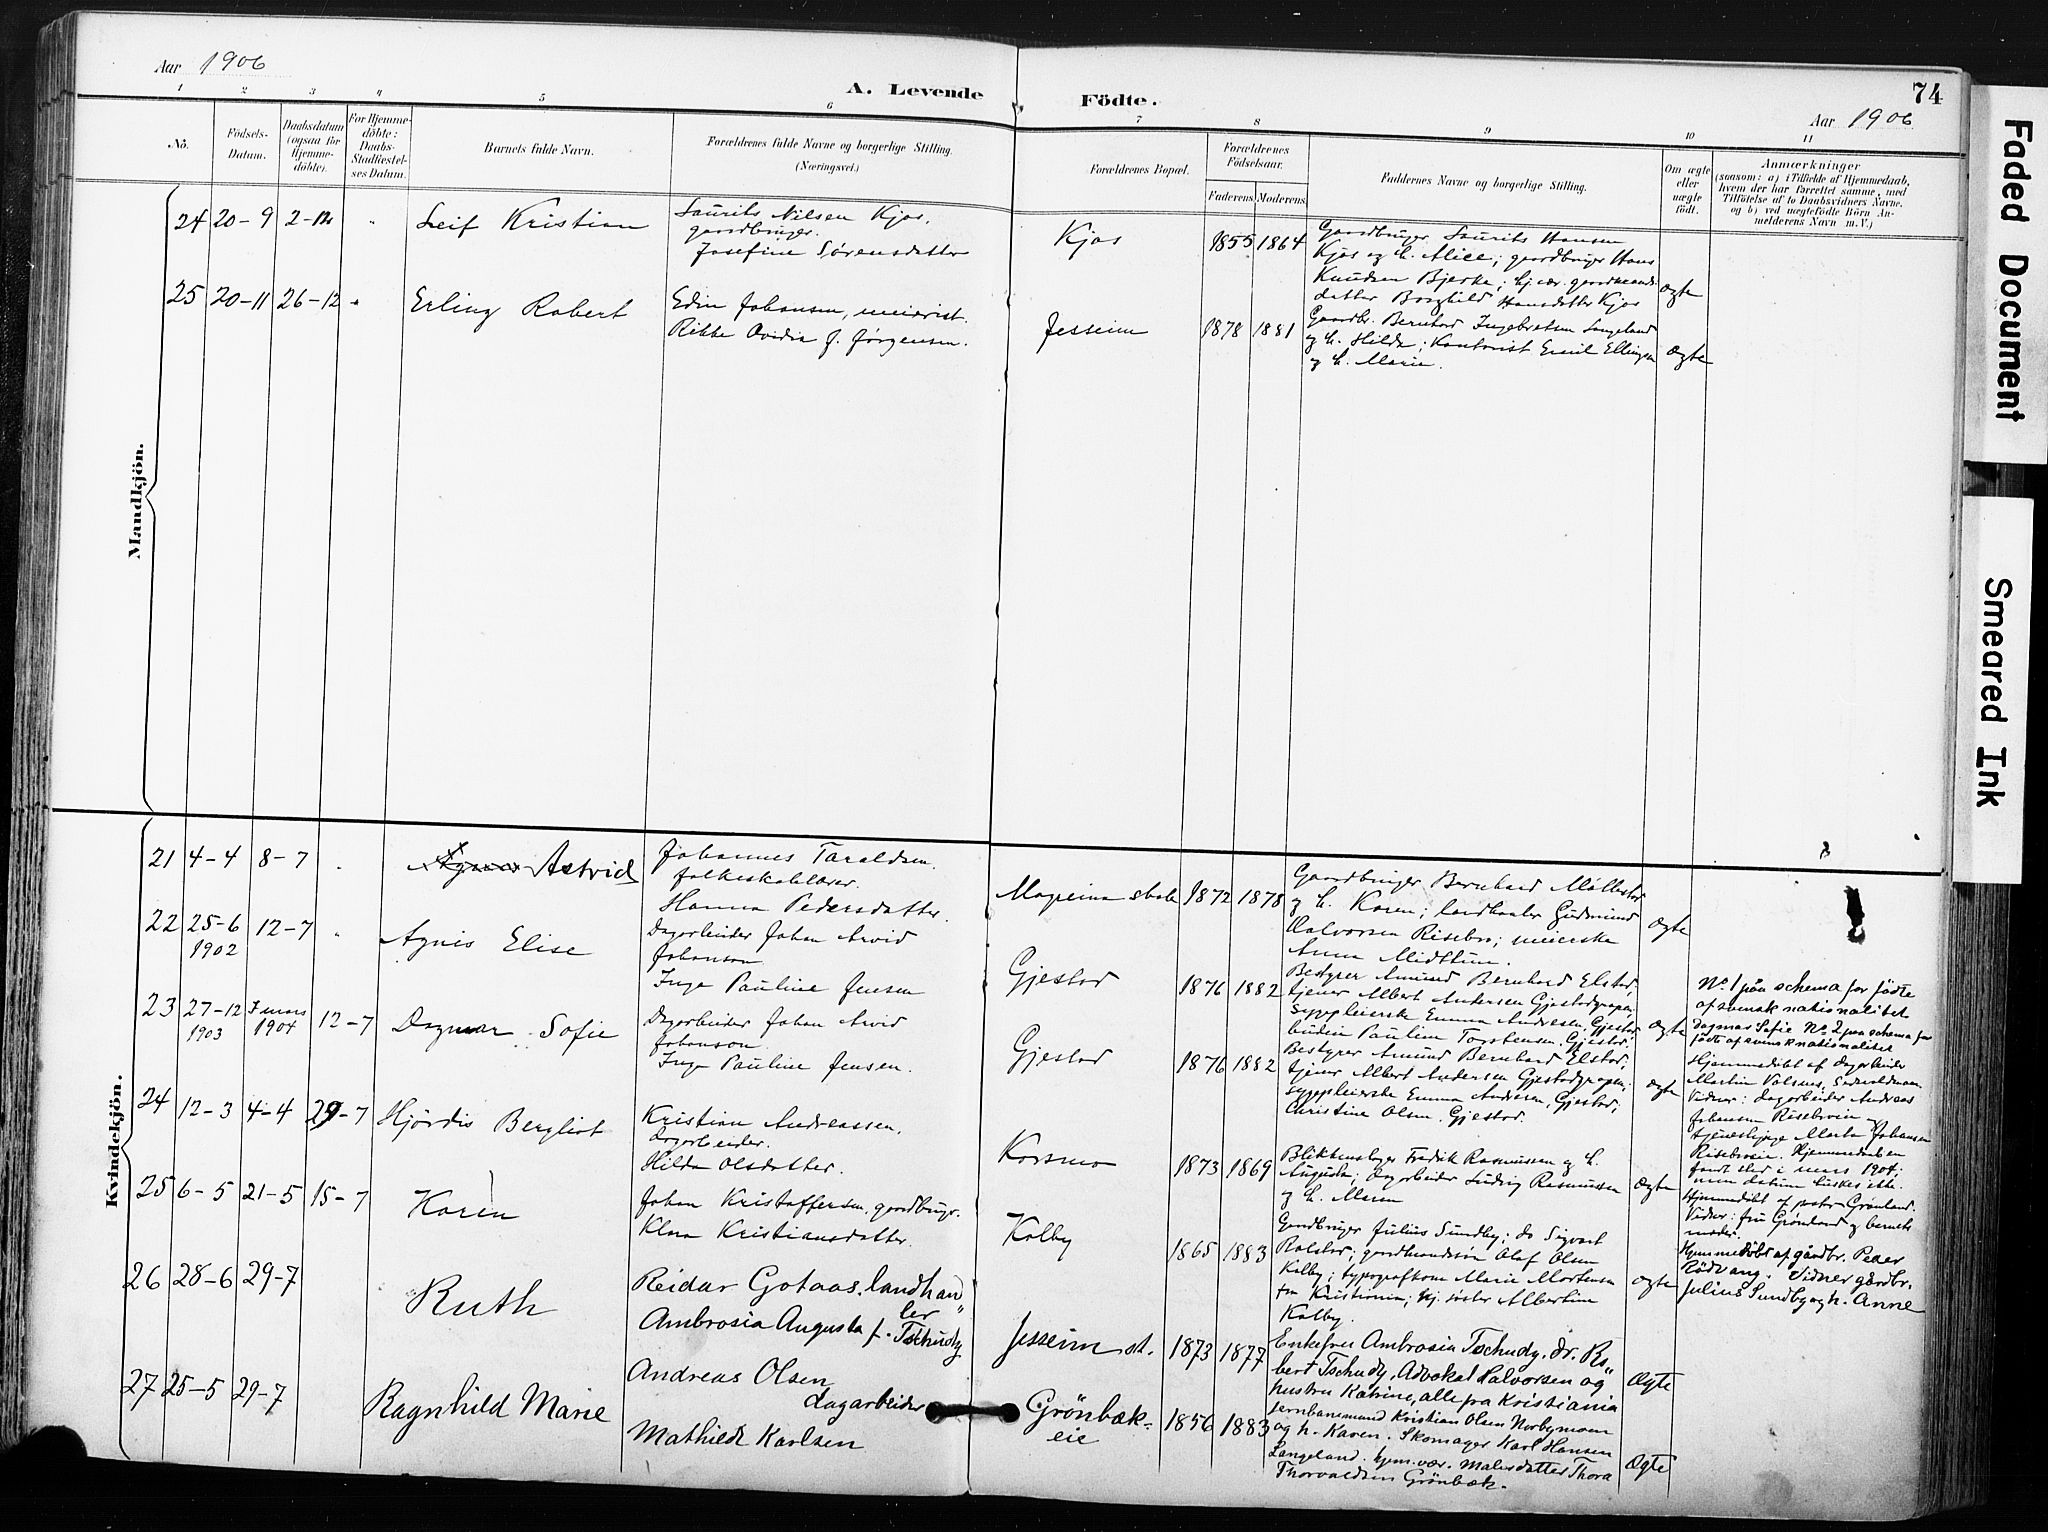 Aar 1906
A. Levende Födte.
74
Aar 1906
1 2 3 4 5 6 7 8 9 10 11
Nô.
Födsels-Datum.
Daabsdatum (ogsaa för Hjemmedöbte).
For Hjemmedöbte: Daabs-Stadfæstelses Datum.
Barnets fulde Navn.
Forældrenes fulde Navne og borgerlige Stilling. (Næringsvei.)
Forældrenes Bopæl.
Forældrenes Födselsaar.
Faderens Moderens
Faddernes Navne og borgerlige Stilling.
Om ægte eller uægte födt.
Anmærkninger
(saasom: a) i Tilfælde af Hjemmedaab,
hvem der har forrettet samme, med
Tilföielse af to Daabsvidners Navne.
og b) ved uægtefödte Börn An-
melderens Navn m. V.)
Mandkjön.
24 20-9 2-12 " Leif Kristian
Laurits Nilsen Kjos,
gaardbruger.
Josefine Sørensdatter
Kjos 1855 1864
Gaardbruger Laurits Hansen
Kjos og h. Alice; gaardbruger Hans
Knudsen Bjerke; hj.vær. gaardmands-
datter Borghild Hansdatter Kjos
Ægte
25 20-11 26-12 " Erling Robert
Edin Johansen, meierist.
Rikke Ovidia f. Jørgensen.
Jesseim 1878 1881
Gaardbr. Bernhard Ingebretsen Langeland
og h. Hilda; Kontorist Emil Ellingsen
og h. Marie.
Ægte
Kvindekjön.
21 4-4 8-7 " Agnes Astrid
Johannes Taraldsen
folkeskolelærer.
Hanna Pedersdatter.
Mogreina skole 1872 1878
Gaardbruger Bernhard Mollestad
og h. Karen; landhandler Gudmund
Halvorsen Risebro; meierske
Anna Midttun.
Ægte
22 25-6 1902 12-7 " Agnis Elise
Dagarbeider Johan Arvid
Johanson
Inga Pauline Jensen
Gjestad 1876 1882
Bestyrer Amund Bernhard Elstad,
tjener Albert Andersen Gjestadgropen,
sygepleierske Emma Andresen, Gjestad,
budeie Pauline Torstensen, Gjestad.
Ægte
No 1 paa schema for födte
af svensk nationalitet
23 27-12 1903 I mars 1904 12-7 Dagmar Sofie
Dagarbeider Johan Arvid
Johanson
Inga Pauline Jensen.
Gjestad 1876 1882
Bestyrer Amund Bernhard Elstad,
tjener Albert Andersen Gjestadgropen;
sygepleierske Emma Andresen, Gjestad;
Christine Olsen, Gjestad.
Ægte
Dagmar Sofie No 2 paa schema for
födte af svensk nationalitet
Hjemmedöbt af dagarbeider
Martin Valsnes,
Vidner: dagarbeider Andreas
Johansen Risebroen og
tjenestepige Marta Johansen
Risebroen. Hjemmedaaben
fandt sted i mars 1904;
men datum huskes ikke.
24 12-3 4-4 29-7 Hjördis Bergliot
Kristian Andreassen,
dagarbeider.
Hilda Olsdatter.
Korsmo 1873 1869
Blikkenslager Fredrik Rasmussen og h.
Augusta; dagarbeider Ludvig Rasmussen
og h. Maren
Ægte
Hjemmedöbt af pastor Grønland.
Vidner: fru Grønland og barnets
moder.
25 6-5 21-5 15-7 Karen
Johan Kristoffersen, gaardbruger.
Klara Kristiansdatter.
Kolby 1865 1883
Gaardbruger Julius Sundby; do Sigvart
Rolstad; gaardmandssøn Olaf Olsen
Kolby; typografkone Marie Mortensen
fra Kristiania; hj. søster Albertine
Kolby.
Ægte
Hjemmedöbt af gårdbr. Peder
Rödvang. Vidner gårdbr.
Julius Sundby og h. Anne
26 28-6 29-7 Ruth
Reidar Gotaas, landhan"
ler
Ambrosia Augusta f. Tschudy
Jesseim st. 1873 1877
Enkefru Ambrosia Tschudy, dr. Ro"
bert Tschudy, Advokat Halvorsen og
hustru Katrine, alle fra Kristiania
Ægte
27 25-5 29-7 Ragnhild Marie
Andreas Olsen
dagarbeider
Mathilde Karlsen
Grönbæk-
eie
1856 1883
Jernbanemand Kristian Olsen Norbymoen
og h. Karen. Skomager Karl Hansen
Langeland. hjem.vær. Malersdatter Thora
Thorvaldsen Grönbæk.
Ægte
Faded Document
Smeared Ink